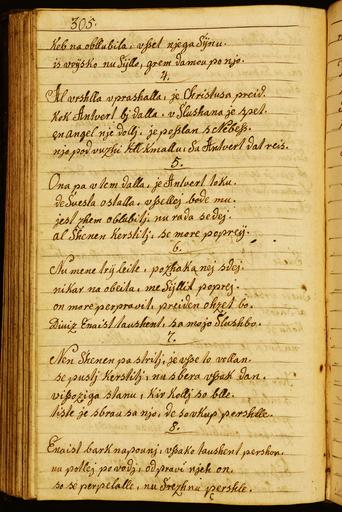 305.
keb na obllubila, vsset njega Sÿnu.
is vojsko nu Sÿllo, grem damou po njo.
4.
Al vrshlla vprashalla, je Christusa preid.
kok Antvert bj dalla, v Slushana je spet.
en angel nje dolj, je posslan s Nebess.
njo pod vuzhi kll kmallu, da Antvert dat reis.
5.
Ona pa v tem dalla, je Antvert toku.
de Svesta ostalla, vssellej bode mu.
jest zhem oblubiti, nu rada se dej.
al Shenen kerstitj, se more poprej.
6.
Nu mene trÿ leite, pozhaka nej sdej.
nikar na obeita, me Sÿllit poprej.
on more perpravit, preiden ohzet bo.
Duiz Enaist taushent, sa mojo Slushbo.
7.
Nen Shenen pa stritj, je vsse to vollan.
se pustj kerstitj, nu sbera vssak dan.
vissoziga stanu, kir kollj so blle.
tiste je sbrau sa njo, de sovkup pershlle.
8.
Enaist bark napounj, vssako taushent pershon.
nu potlej po vodj, odpravi njeh on.
so se perpelalle, nu Srezhnu pershle.